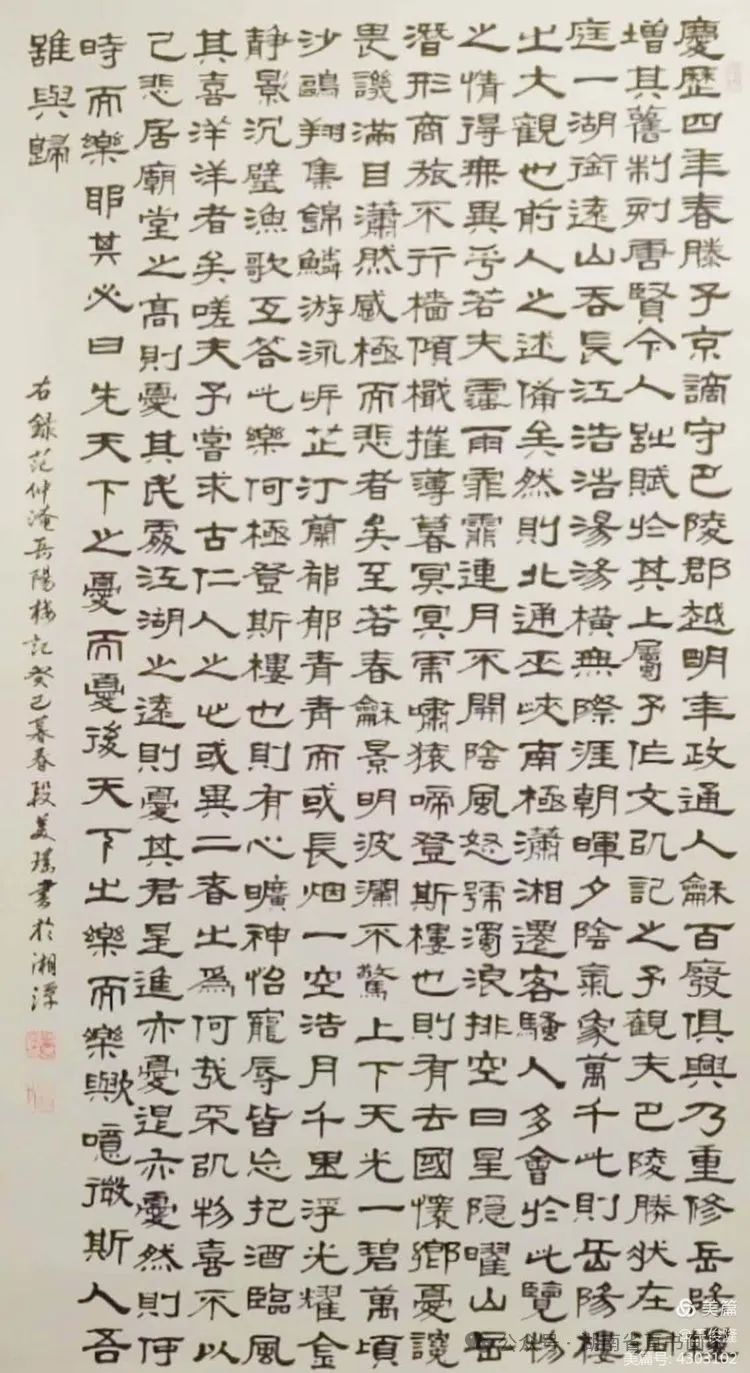 慶歷四年春滕子京謫守巴陵郡越明年政通人龢百廢俱興乃重修岳陽樓
增其舊制刻唐賢今人詩賦於其上屬予作文以記之予觀夫巴陵勝狀在洞
庭一湖銜遠山吞長江浩浩湯湯橫無際涯朝暉夕陰氣象萬千此則岳陽樓
之大觀也前人之述備矣然則北通巫峽南極瀟湘遷客騷人多會於此覽物
之情得無異乎若夫霪雨霏霏連月不開陰風怒號濁浪排空日星隱曜山岳
潛形商旅不行檣傾檝摧薄暮冥冥虎嘯猿啼登斯樓也則有去國懷鄉憂讒
畏譏滿目瀟然感極而悲者矣至若春龢景明波瀾不驚上下天光一碧萬頃
沙鷗翔集錦鱗游泳岸芷汀蘭郁郁青青而或長烟一空浩月千里浮光耀金
静影沉璧漁歌互答此樂何極登斯樓也則有心曠神怡寵辱皆忘把酒臨風
其喜洋洋者矣嗟夫予嘗求古仁人之心或異二者之為何哉不以物喜不以
己悲居廟堂之高則憂其民處江湖之遠則憂其君是進亦憂退亦憂然則何
時而樂耶其必曰先天下之憂而憂後天下之樂而樂歟噫微斯人吾
誰與歸
右錄范仲淹岳陽樓記癸巳暮春段美瑤書於湘潭
美篇
公众号·湖南省直书画
美篇号: 4303102